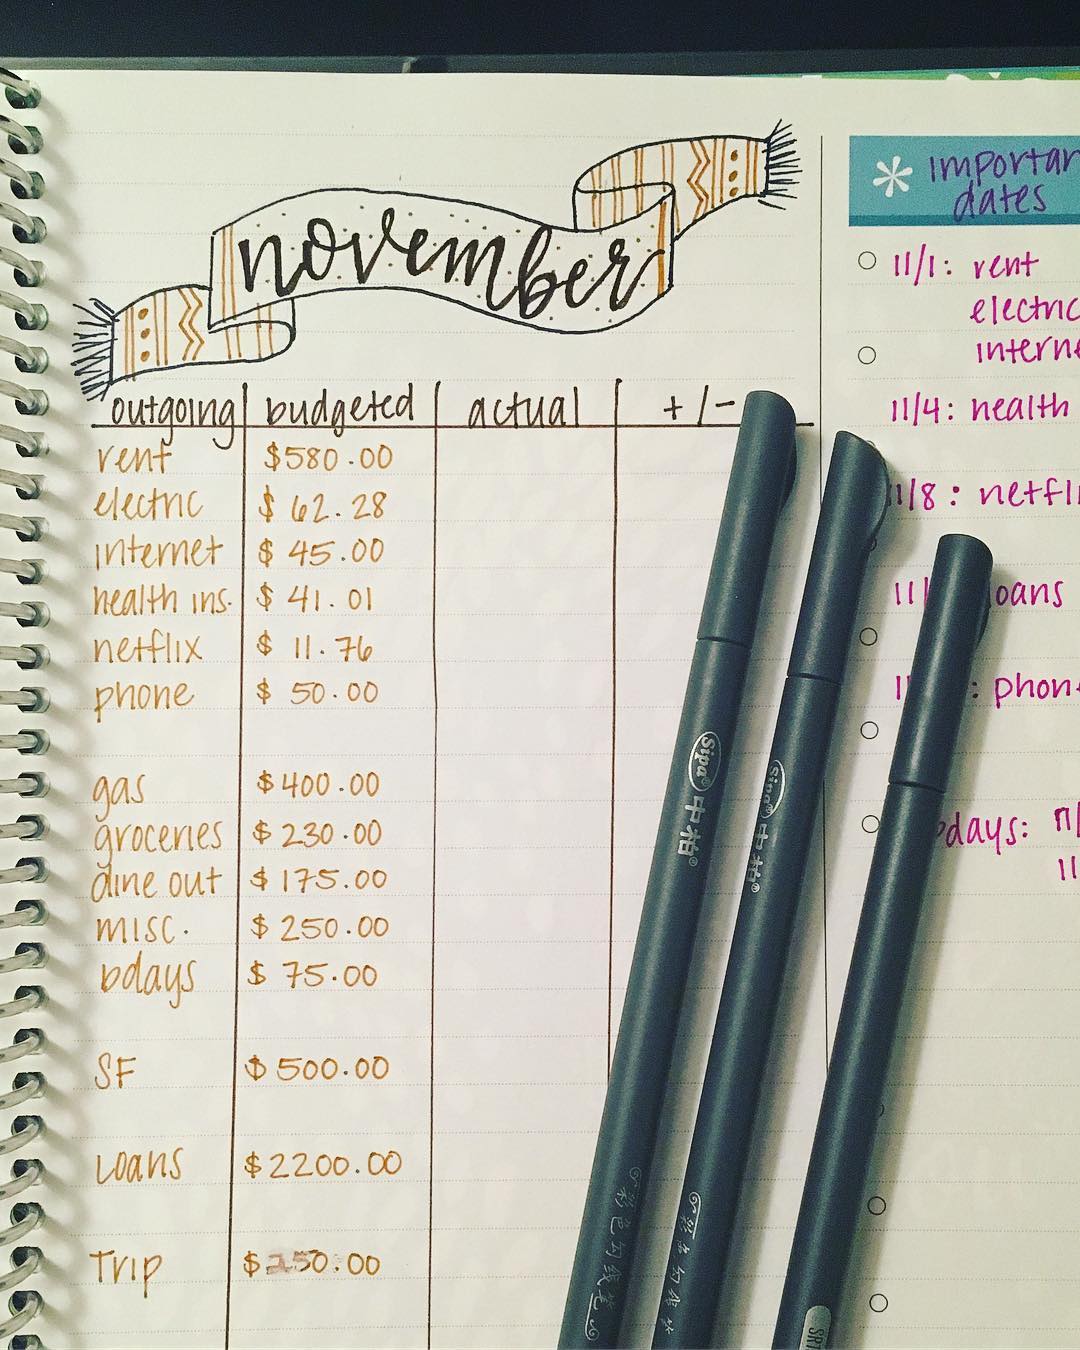 november
outgoing budgeted actual +/-
rent $580.00
electric $62.28
internet $45.00
health ins. $41.01
netflix $11.76
phone $50.00
gas $400.00
groceries $230.00
dine out $175.00
misc. $250.00
bdays $75.00
SF $500.00
Loans $2200.00
Trip $250.00
* importan
dates
11/1: rent
electric
interne
11/4: health
11/8: netfli
11/ loans
11/ : phon
bdays: 11/
11
Sipa 中柏®
Sipa 中柏®
彩色勾线笔
SR1